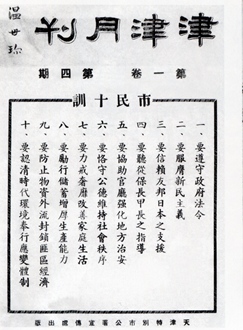 津津月刊
温世珍
第一卷 第四期
市民十訓
一、要遵守政府法令
二、要服膺新民主義
三、要信賴友邦日本之支援
四、要聽從保長甲長之指導
五、要協助官廳强化地方治安
六、要恪守公德維持社會秩序
七、要力戒奢靡改善家庭生活
八、要勵行儲蓄增厚生產能力
九、要防止物資外流封鎖匪區經濟
十、要認清時代環境奉行應變體制
天津特別市公署宣傳處出版